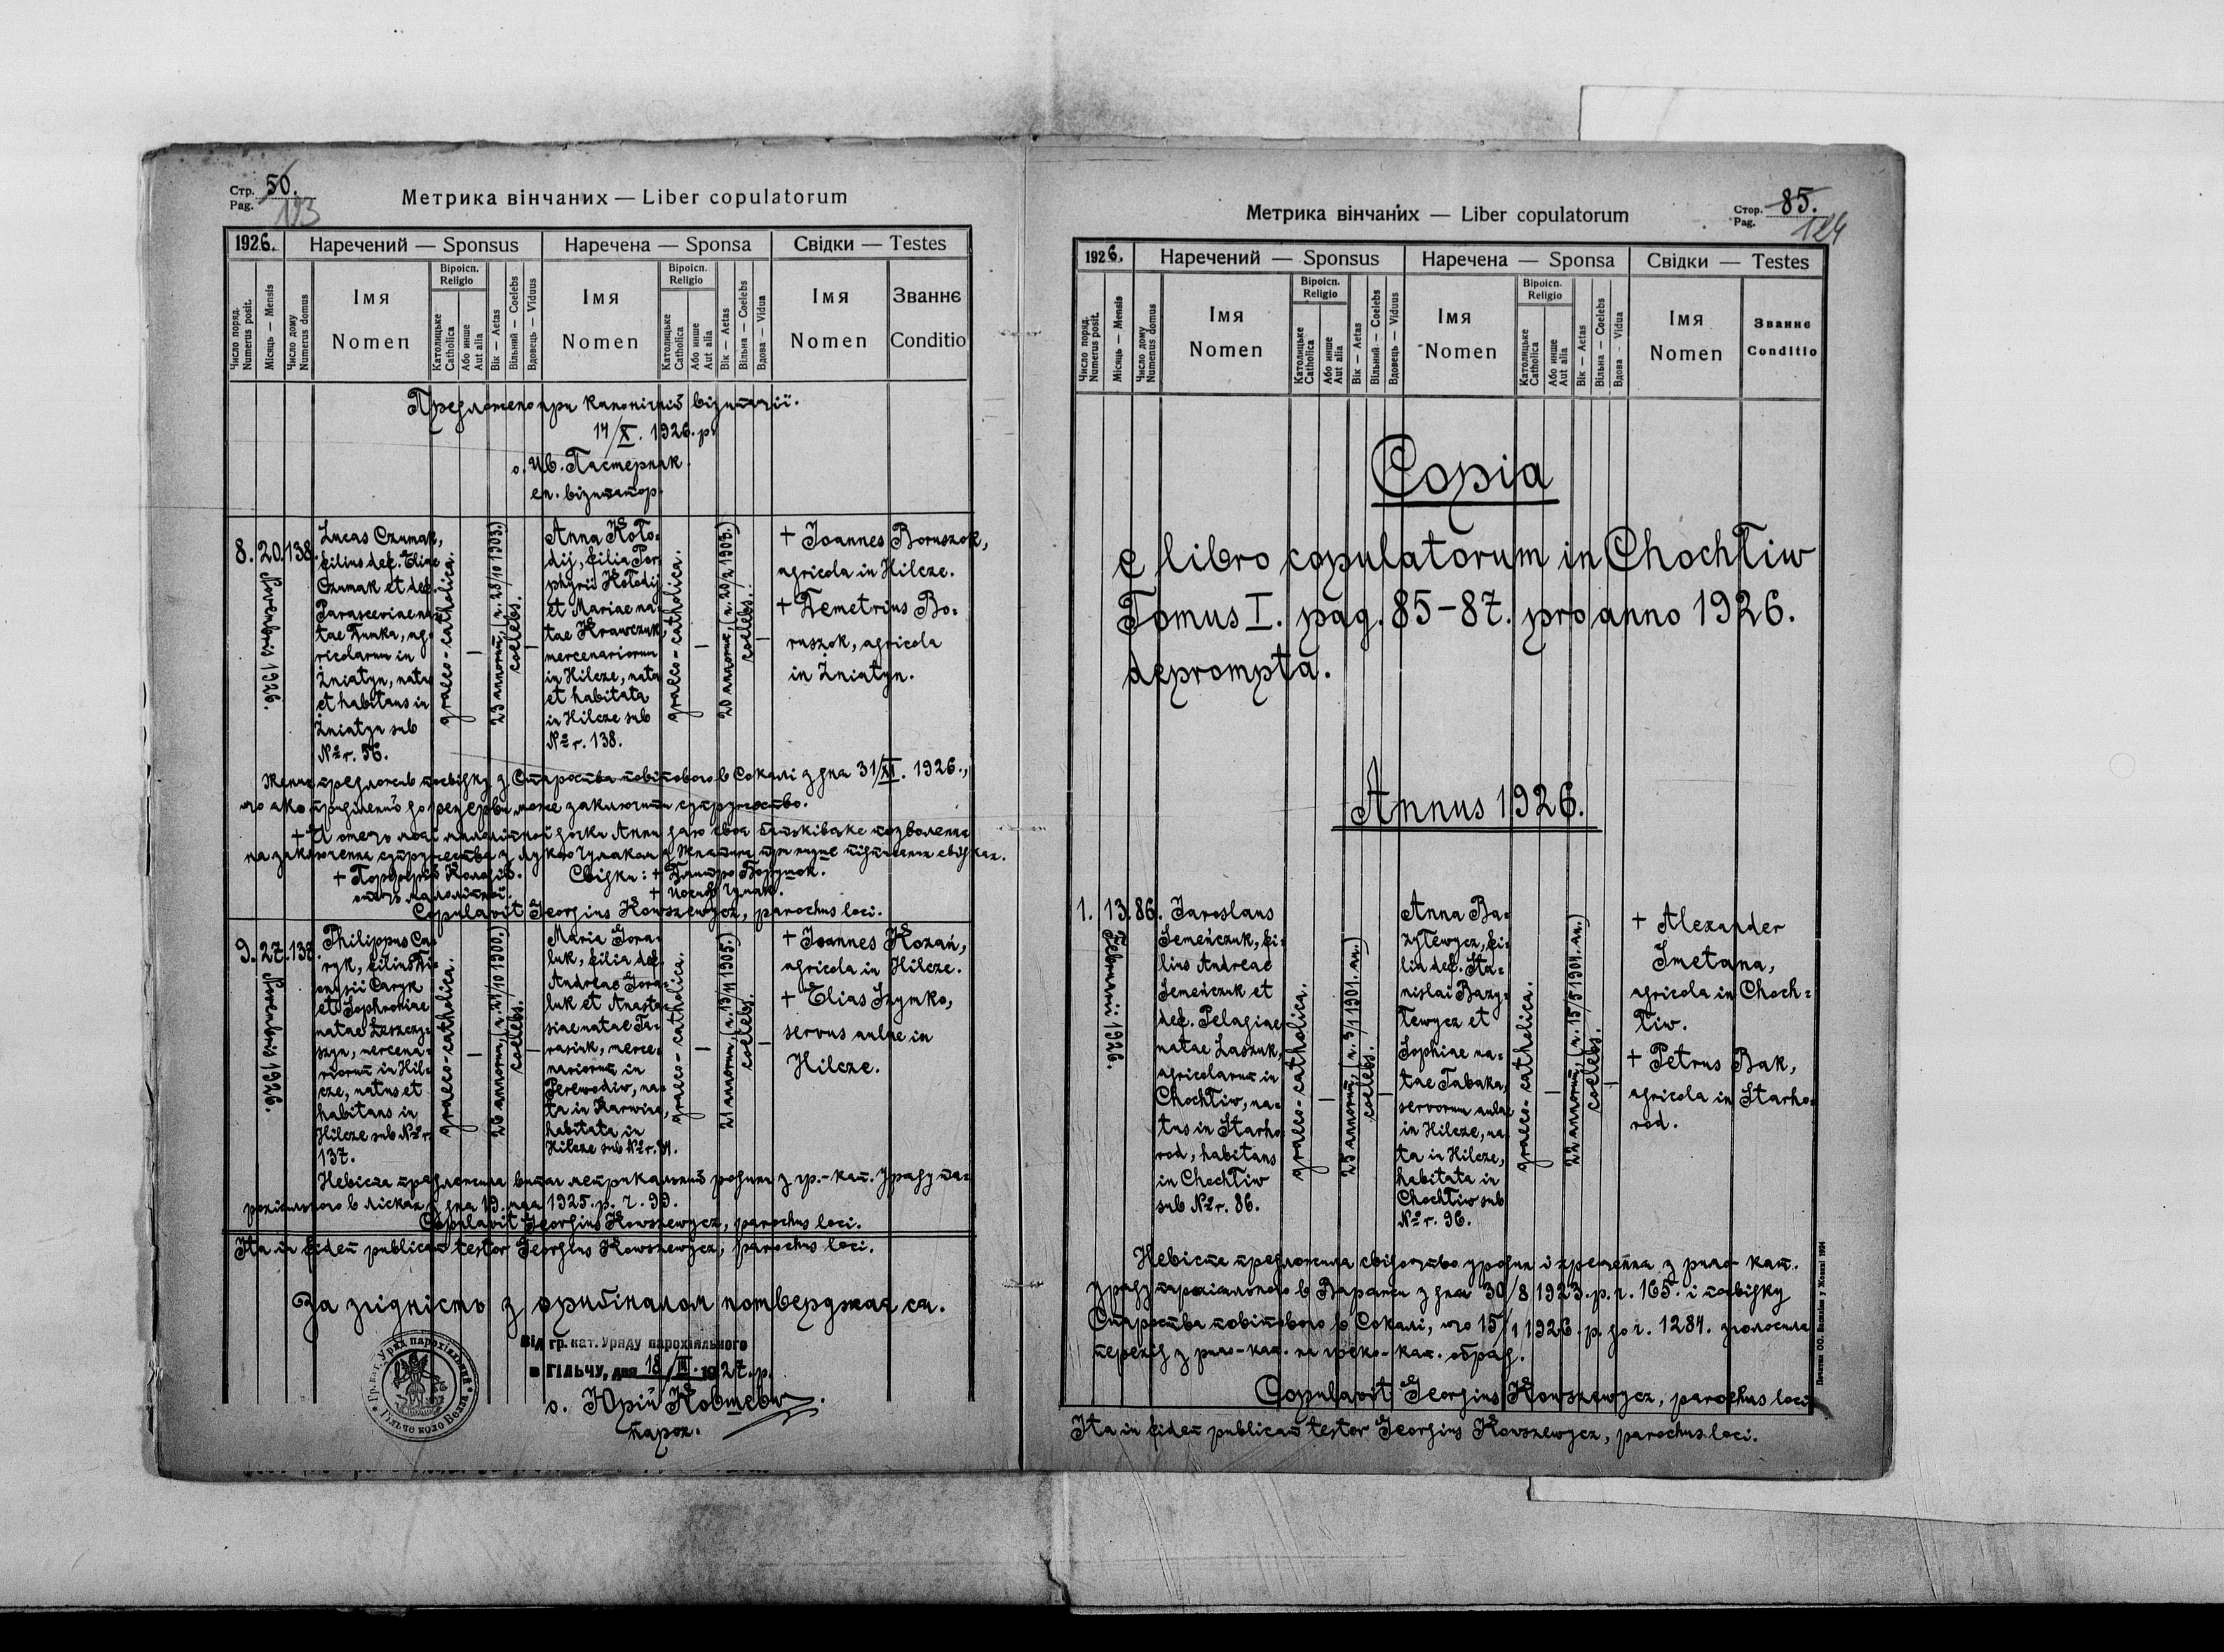 Стр. Pag. 50.
123
Метрика вінчаних — Liber copulatorum
1926. Наречений — Sponsus Наречена — Sponsa Свідки — Testes
Число поряд. Numerus posit.
Місяць — Mensis
Число дому Numerus domus
Імя Nomen
Віроісп. Religio
Католицьке Catholica
Або инше Aut alia
Вік — Aetas
Вільний — Coelebs
Вдовець — Viduus
Імя Nomen
Віроісп. Religio
Католицьке Catholica
Або инше Aut alia
Вік — Aetas
Вільна — Coelebs
Вдова — Vidua
Імя Nomen
Званнє Conditio
Предложено при канонічній візитації.
14/X. 1926. р.
о. Ів. Пастернак
еп. візитатор.
8. 20. Novembris 1926. 138.
Lucas Czumak,
filius def. Eliae
Czumak et def.
Parasceviae na-
tae Dumka, ag-
ricolarum in
Żniatyn, natus
et habitans in
Żniatyn sub
No r. 56.
graeco-catholica.
—
23 annorum, (n. 28/10 1903.)
coelebs.
—
Anna Koło-
dij, filia Por-
phyrii Kołodij
et Mariae na-
tae Krawczuk,
mercenariorum
in Hilcze, nata
et habitata
in Hilcze sub
No r. 138.
graeco-catholica.
—
20 annorum, (n. 20/2 1903.)
coelebs.
—
+ Joannes Boruszok,
agricola in Hilcze.
+ Demetrius Bo-
ruszok, agricola
in Żniatyn.
Жених предложив посвідку з Староства повітового в Сокалі з дня 31/XI. 1926.,
що яко приділений до резерви може заключити супружество.
+ Я отець моєї малолітної дочки Анни даю своє батьківське позволення
на заключення супружества з Лукою Чумаком з Жнятина при нище підписаних свідках.
+ Порфирій Колодій. Свідки: + Дмитро Борушок.
отець малолітної. + Йосиф Чумак.
Copulavit Georgius Kowszewycz, parochus loci.
9. 27. Novembris 1926. 137.
Philippus Ca-
ryk, filius Di-
onysii Caryk
et Sophroniae
natae Leszczy-
szyn, mercena-
riorum in Hil-
cze, natus et
habitans in
Hilcze sub No r.
137.
graeco-catholica.
—
26 annorum, (n. 24/10 1900.)
coelebs.
—
Maria Gora-
luk, filia def.
Andreae Gora-
luk et Anasta-
siae natae Ta-
rasiuk, merce-
nariorum in
Perewodiw, na-
ta in Karwina,
habitata in
Hilcze sub No r. 91.
graeco-catholica.
—
21 annorum, (n. 13/11 1905.)
coelebs.
—
+ Joannes Kozań,
agricola in Hilcze.
+ Elias Szymko,
servus aulae in
Hilcze.
Невіста предложила витяг метрикальний родини з гр.-кат. Уряду па-
рохіяльного в з дня 19. мая 1925. р. ч. 99.
Copulavit Georgius Kowszewycz, parochus loci.
Ita in fidem publicam testor Georgius Kowszewycz, parochus loci.
За згідність з оригіналом потверджає ся.
Від гр. кат. Уряду парохіяльного
в ГІЛЬЧУ, дня 18/III. 1927. р.
о. Юрій Ковшевич
парох.
Гр. кат. Уряд парохіяльний
Гільче коло Белза
Стор. Pag. 85.
124
Метрика вінчаних — Liber copulatorum
1926. Наречений — Sponsus Наречена — Sponsa Свідки — Testes
Число поряд. Numerus posit.
Місяць — Mensis
Число дому Numerus domus
Імя Nomen
Віроісп. Religio
Католицьке Catholica
Або инше Aut alia
Вік — Aetas
Вільний — Coelebs
Вдовець — Viduus
Імя Nomen
Віроісп. Religio
Католицьке Catholica
Або инше Aut alia
Вік — Aetas
Вільна — Coelebs
Вдова — Vidua
Імя Nomen
Званнє Conditio
Copia
e libro copulatorum in Chochłiw
Tomus I. pag. 85-87. pro anno 1926.
deprompta.
Annus 1926.
1. 13. Februarii 1926. 86.
Jaroslaus
Semeńczuk, fi-
lius Andreae
Semeńczuk et
def. Pelagiae
natae Laszuk,
agricolarum in
Chochłiw, na-
tus in Starho-
rod, habitans
in Chochłiw
sub No r. 86.
graeco-catholica.
—
25 annorum, (n. 3/1 1901. an.)
coelebs.
—
Anna Ba-
zyłewycz, fi-
lia def. Sta-
nislai Bazy-
łewycz et
Sophiae na-
tae Tabaka,
servorum aulae
in Hilcze, na-
ta in Hilcze,
habitata in
Chochłiw sub
No r. 96.
graeco-catholica.
—
22 annorum, (n. 15/5 1904. an.)
coelebs.
—
+ Alexander
Smetana,
agricola in Choch-
łiw.
+ Petrus Bak,
agricola in Starho-
rod.
Невіста предложила свідоцтво уродин і хрещення з римо-кат.
уряду парохіяльного в Варяжи з дня 30/8 1923. р. ч. 165. і посвідку
Староства повітового в Сокалі, що 15/1 1926. р. до ч. 1284. зголосила
перехід з римо-кат. на греко-кат. обряд.
Copulavit Georgius Kowszewycz, parochus loci
Ita in fidem publicam testor Georgius Kowszewycz, parochus loci.
Печатня ОО. Василіян у Жовкві 1924